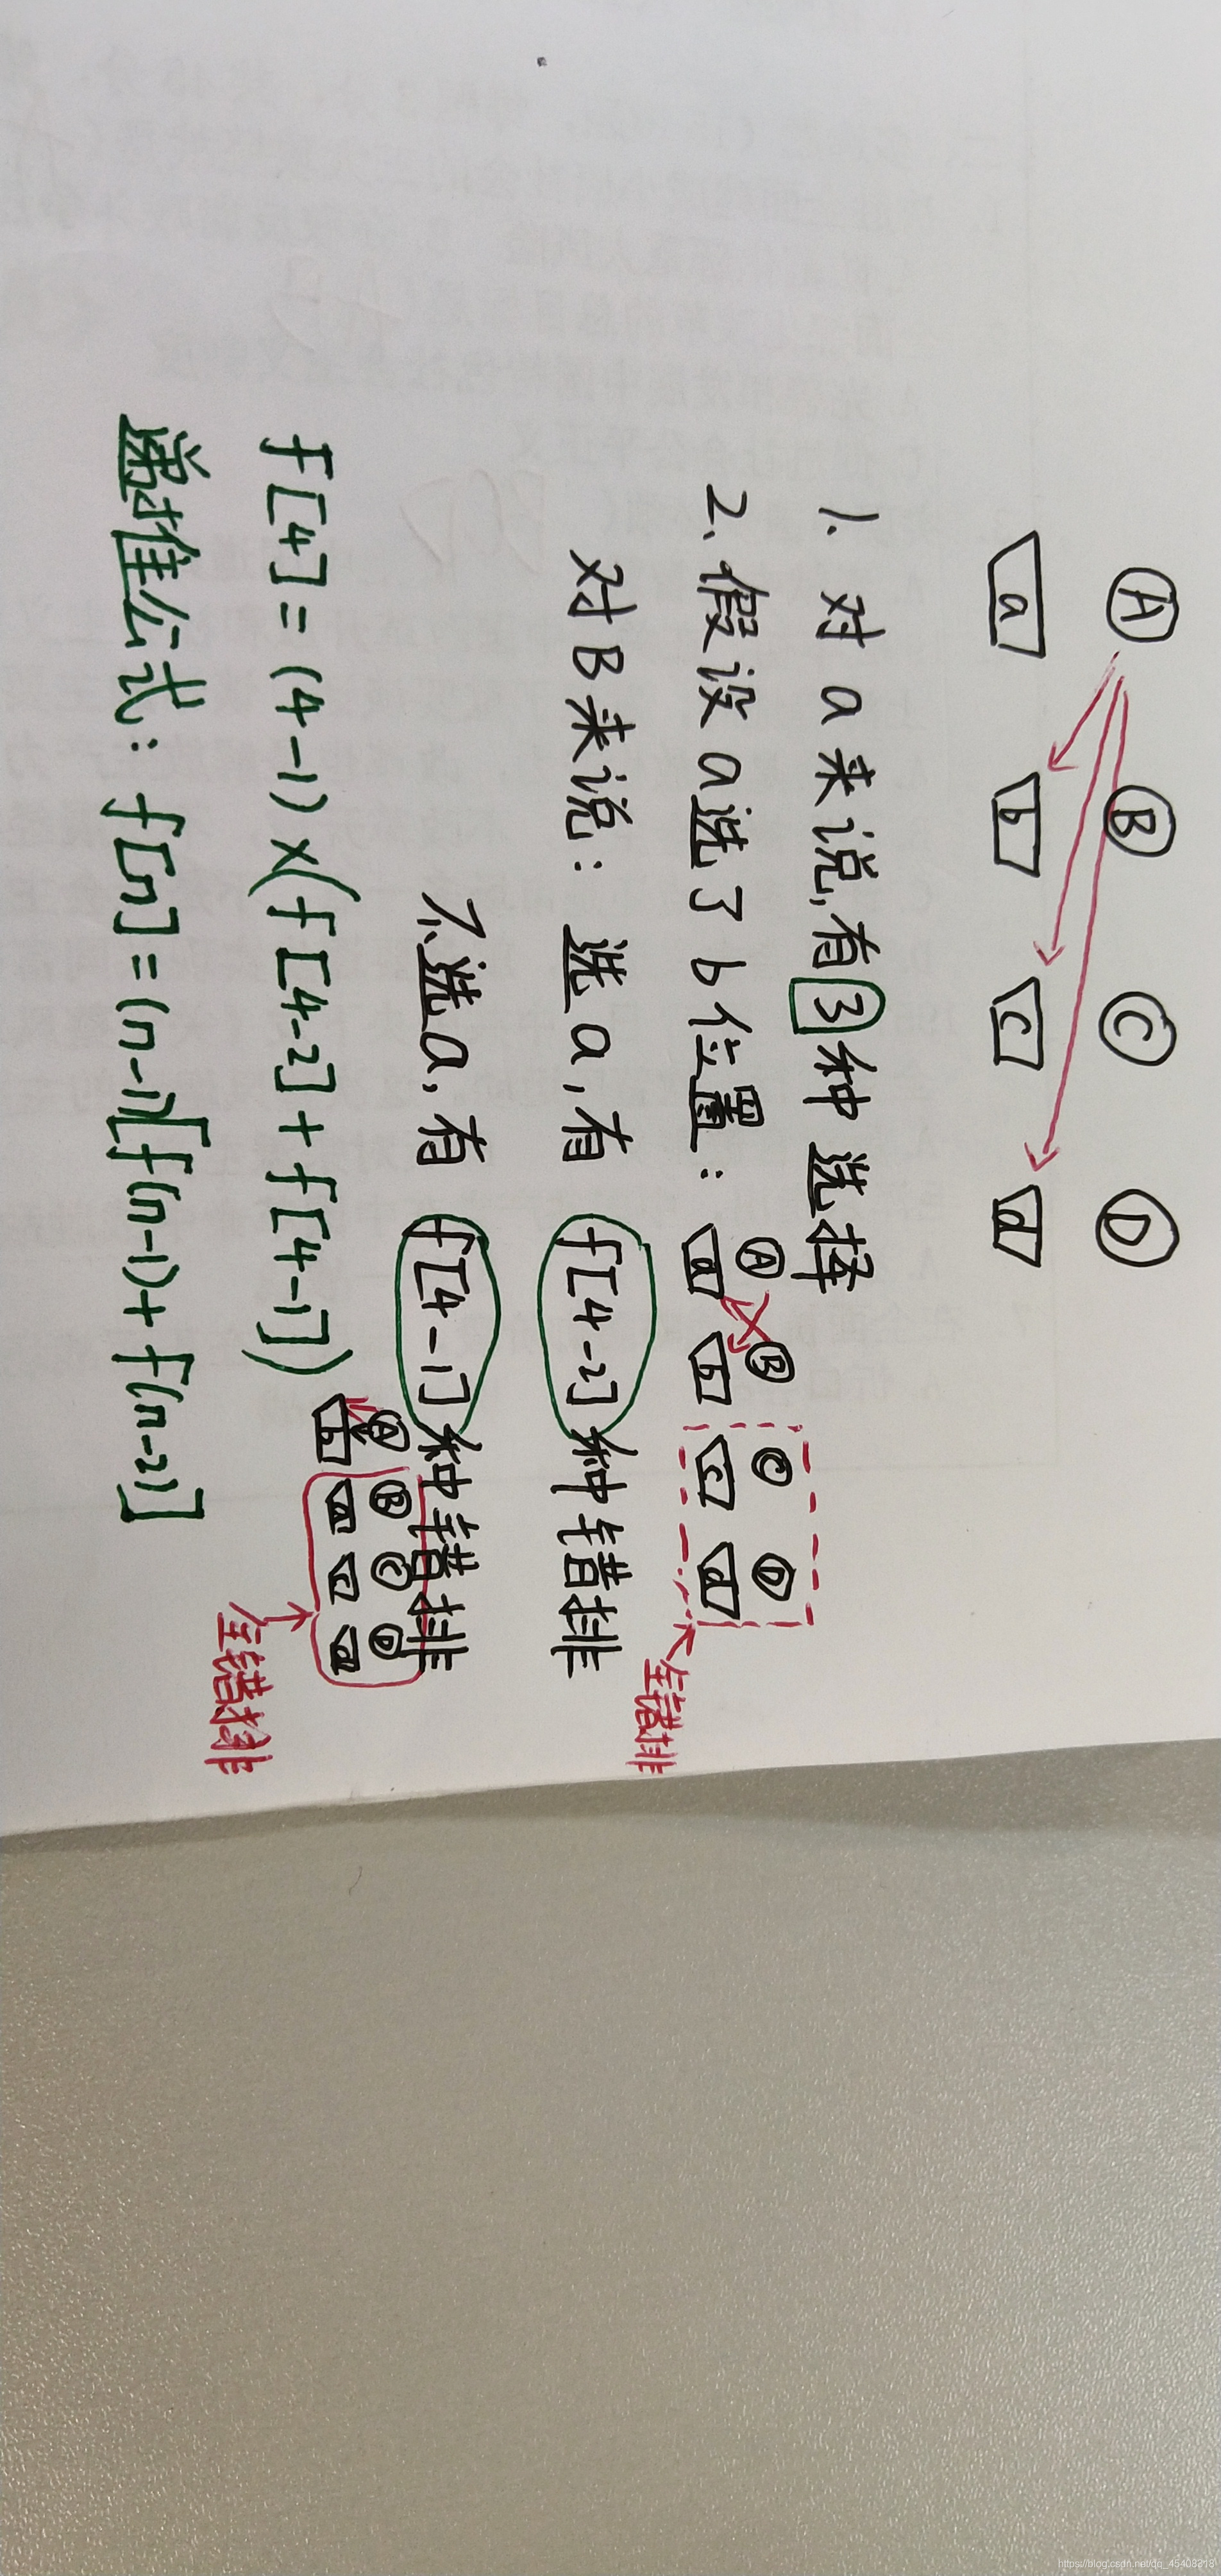 A B C D
a b c d
1. 对a来说,有3种选择
2、假设a选了b位置:
A B C D
a b c d
全错排
对B来说: 选a,有 f[4-2]种错排
不选a,有 f[4-1]种错排
A B C D
b a c d
全错排
f[4]=(4-1)×(f[4-2]+f[4-1])
递推公式: f[n]=(n-1)[f(n-1)+f(n-2)]